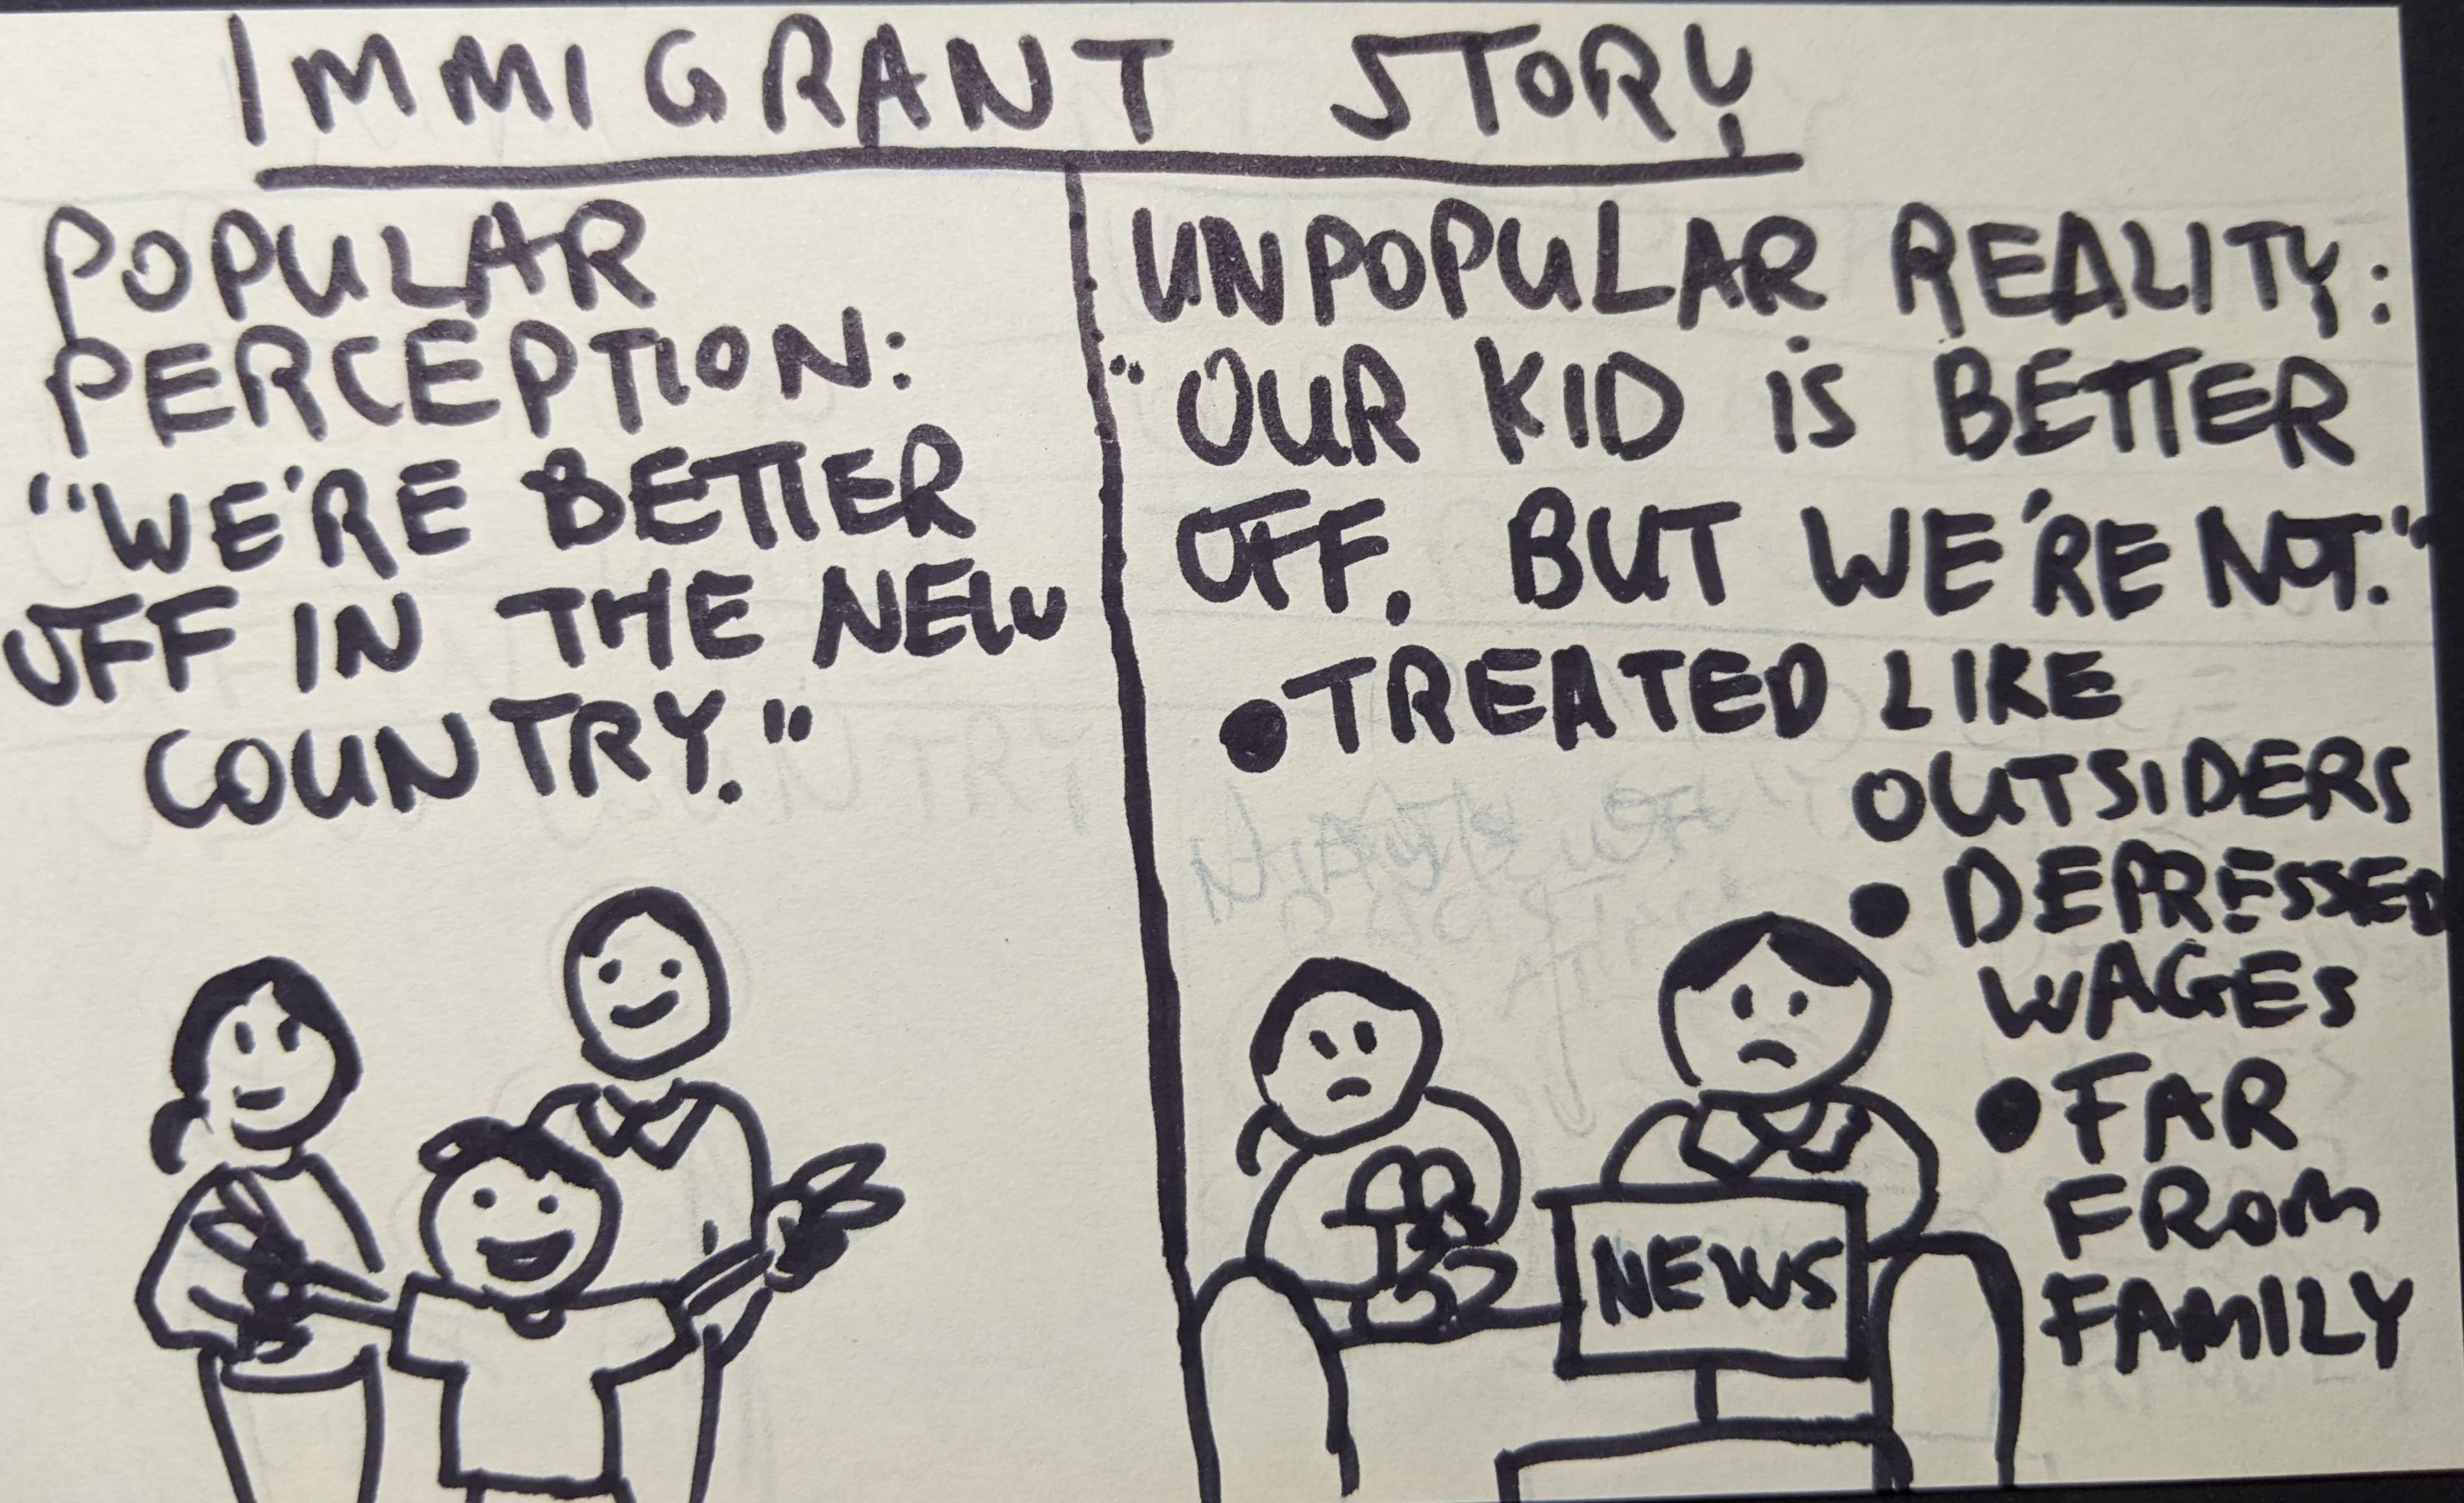 IMMIGRANT STORY
POPULAR
PERCEPTION:
"WE'RE BETTER
OFF IN THE NEW
COUNTRY."
UNPOPULAR REALITY:
"OUR KID IS BETTER
OFF. BUT WE'RE NOT."
• TREATED LIKE
OUTSIDERS
• DEPRESSED
WAGES
• FAR
FROM
FAMILY
NEWS